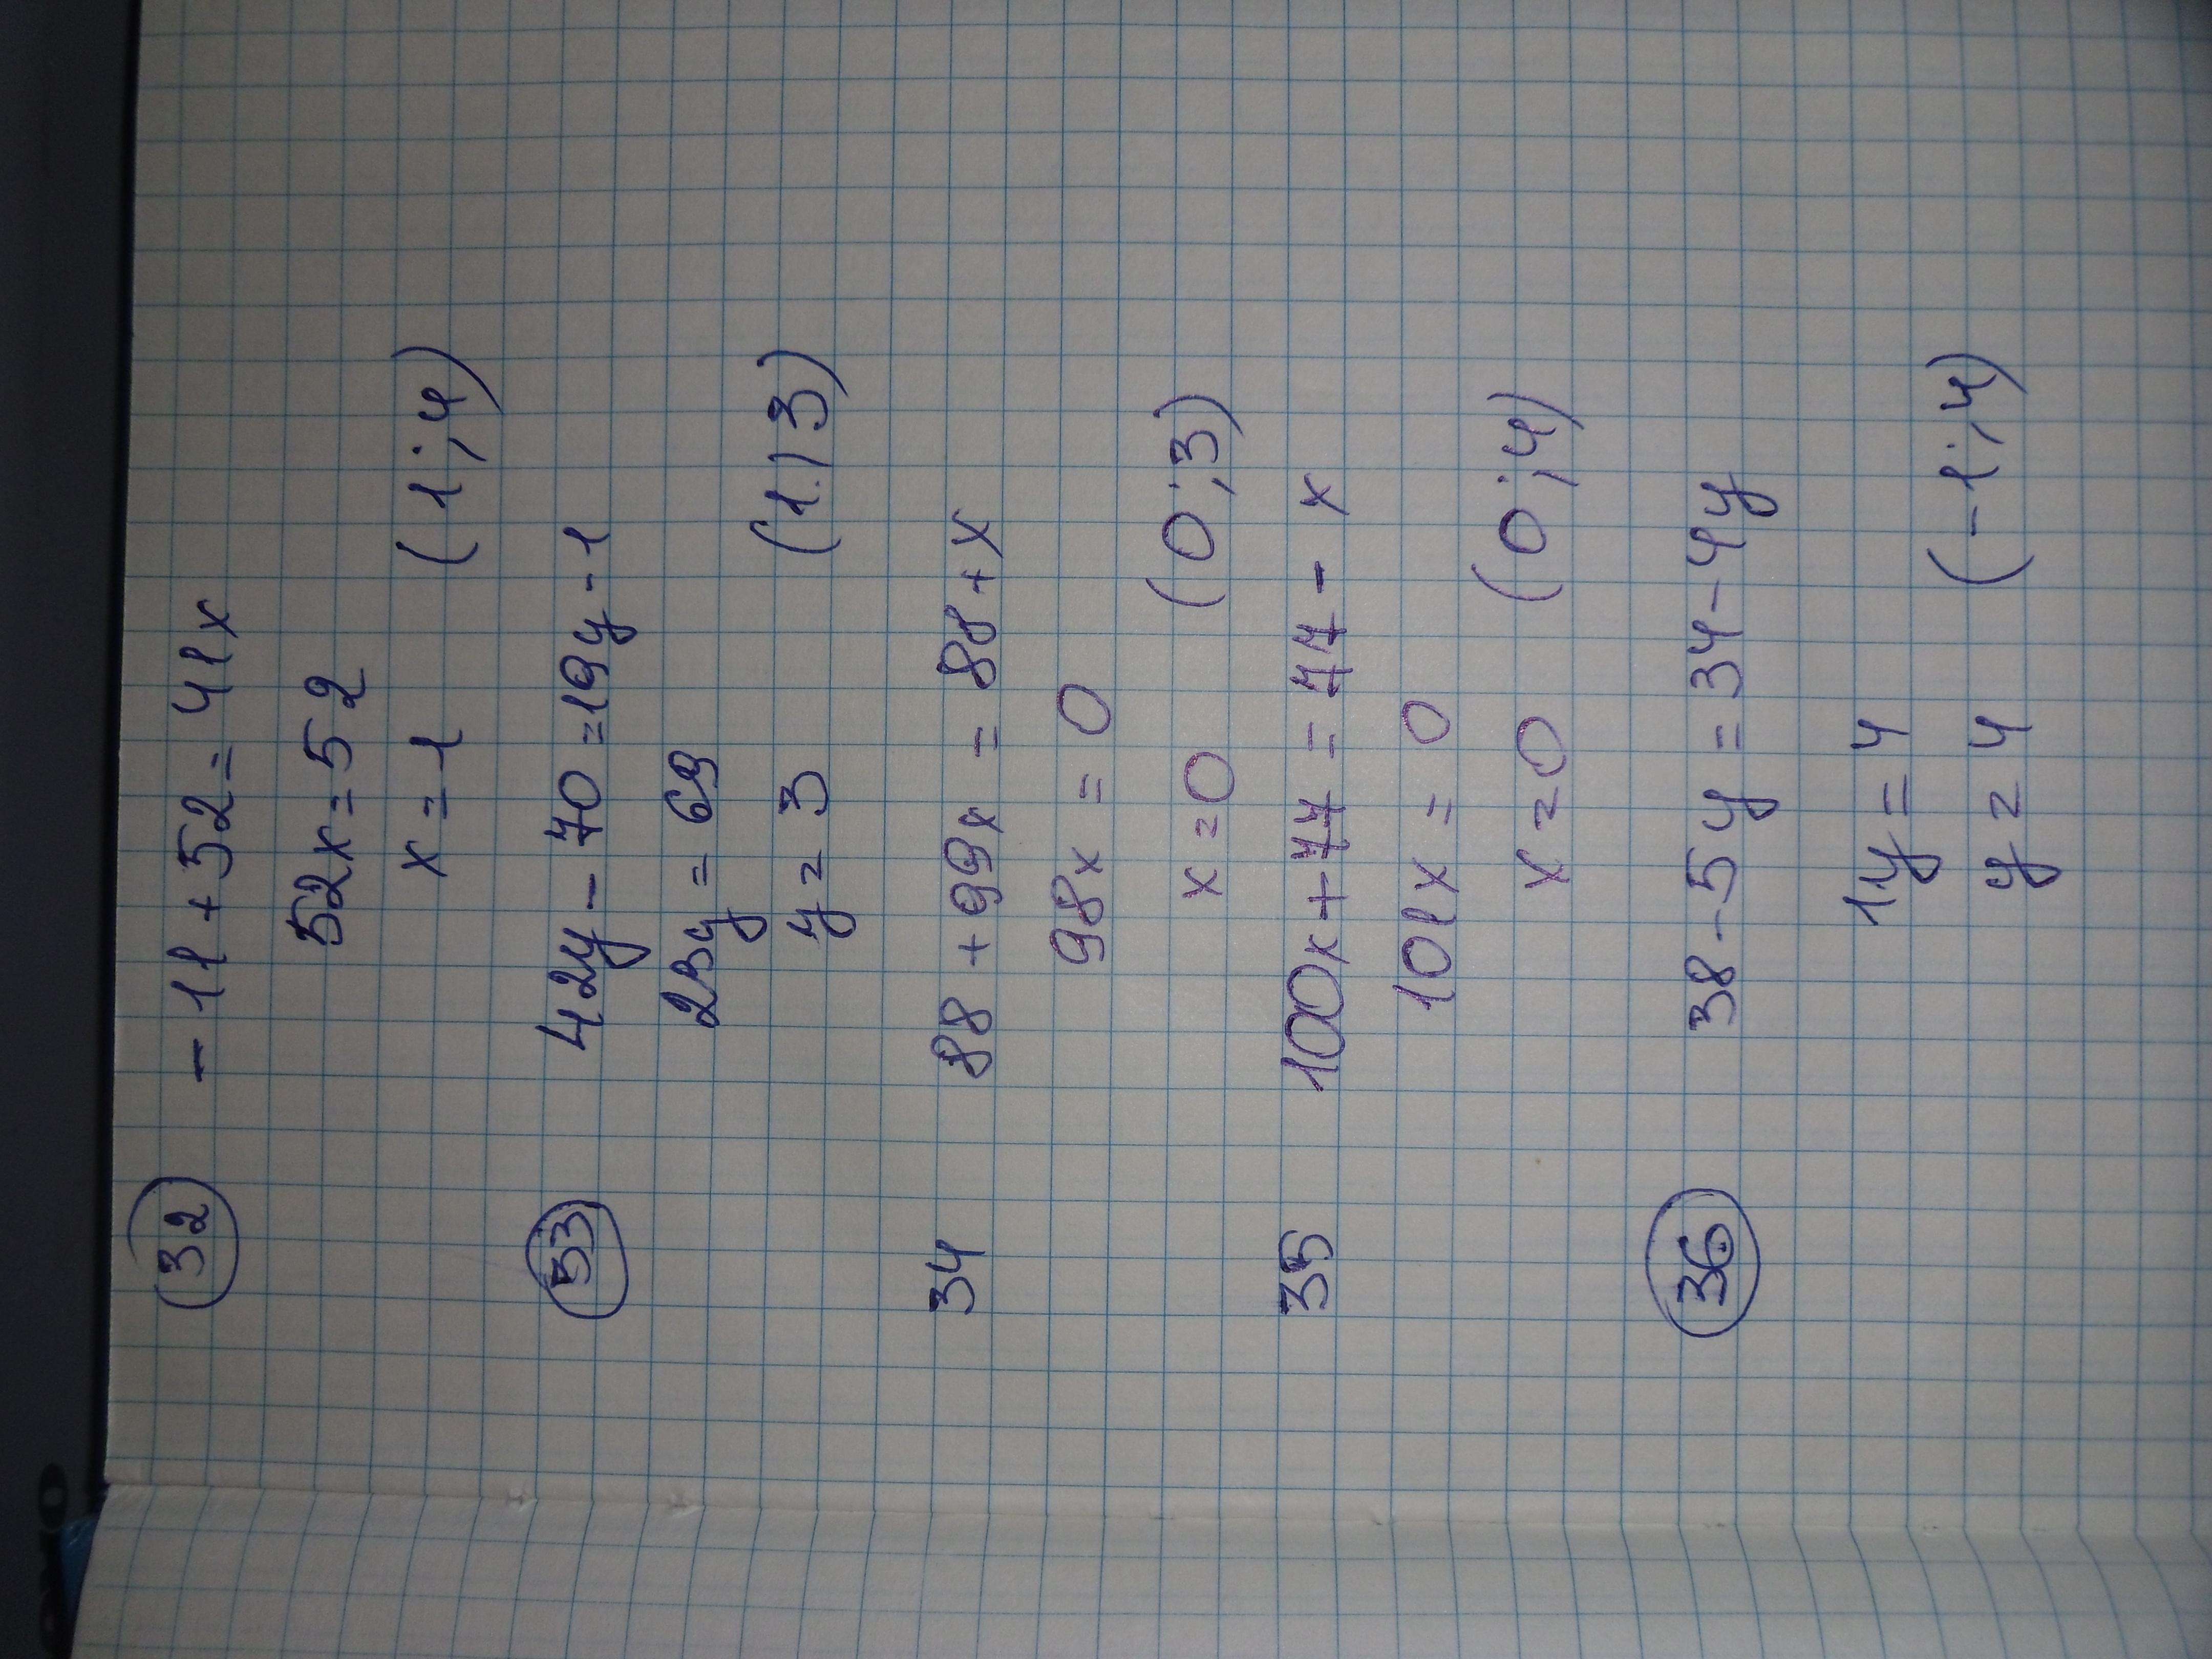 32 - 11 + 52 = 41x
52x = 52
x = 1 (1;4)
33 42y - 70 = 19y - 1
23y = 69
y = 3 (1;3)
34 88 + 99x = 88 + x
98x = 0
x = 0 (0;3)
35 100x + 77 = 77 - x
101x = 0
x = 0 (0;4)
36 38 - 5y = 34 - 4y
1y = 4
y = 4 (-1;4)